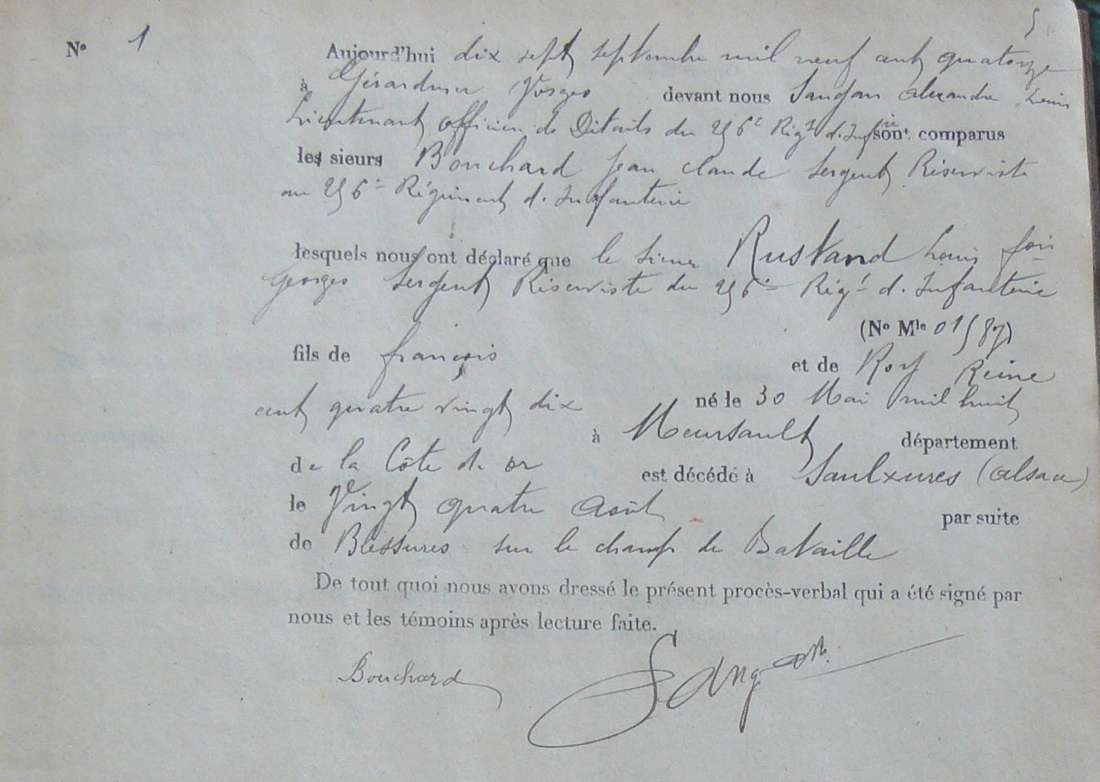 5
N° 1
Aujourd'hui dix sept septembre mil neuf cent quatorze
à Gérardmer Vosges devant nous Sangan Alexandre Louis
Lieutenant officier de Détails du 256e Régt d'Infie son. comparus
les sieurs Bouchard Jean Claude Sergent Réserviste
au 256e Régiment d'Infanterie
lesquels nous ont déclaré que le sieur Rustand Louis fois
Georges Sergent Réserviste du 256e Régt d'Infanterie
(N° Mle 01587)
fils de françois et de Roy Reine
né le 30 Mai mil huit
cent quatre vingt dix
à Meursault département
de la Côte de or est décédé à Saulxures (alsace)
le Vingt quatre Août par suite
de Blessures sur le champ de Bataille
De tout quoi nous avons dressé le présent procès-verbal qui a été signé par
nous et les témoins après lecture faite.
Bouchard